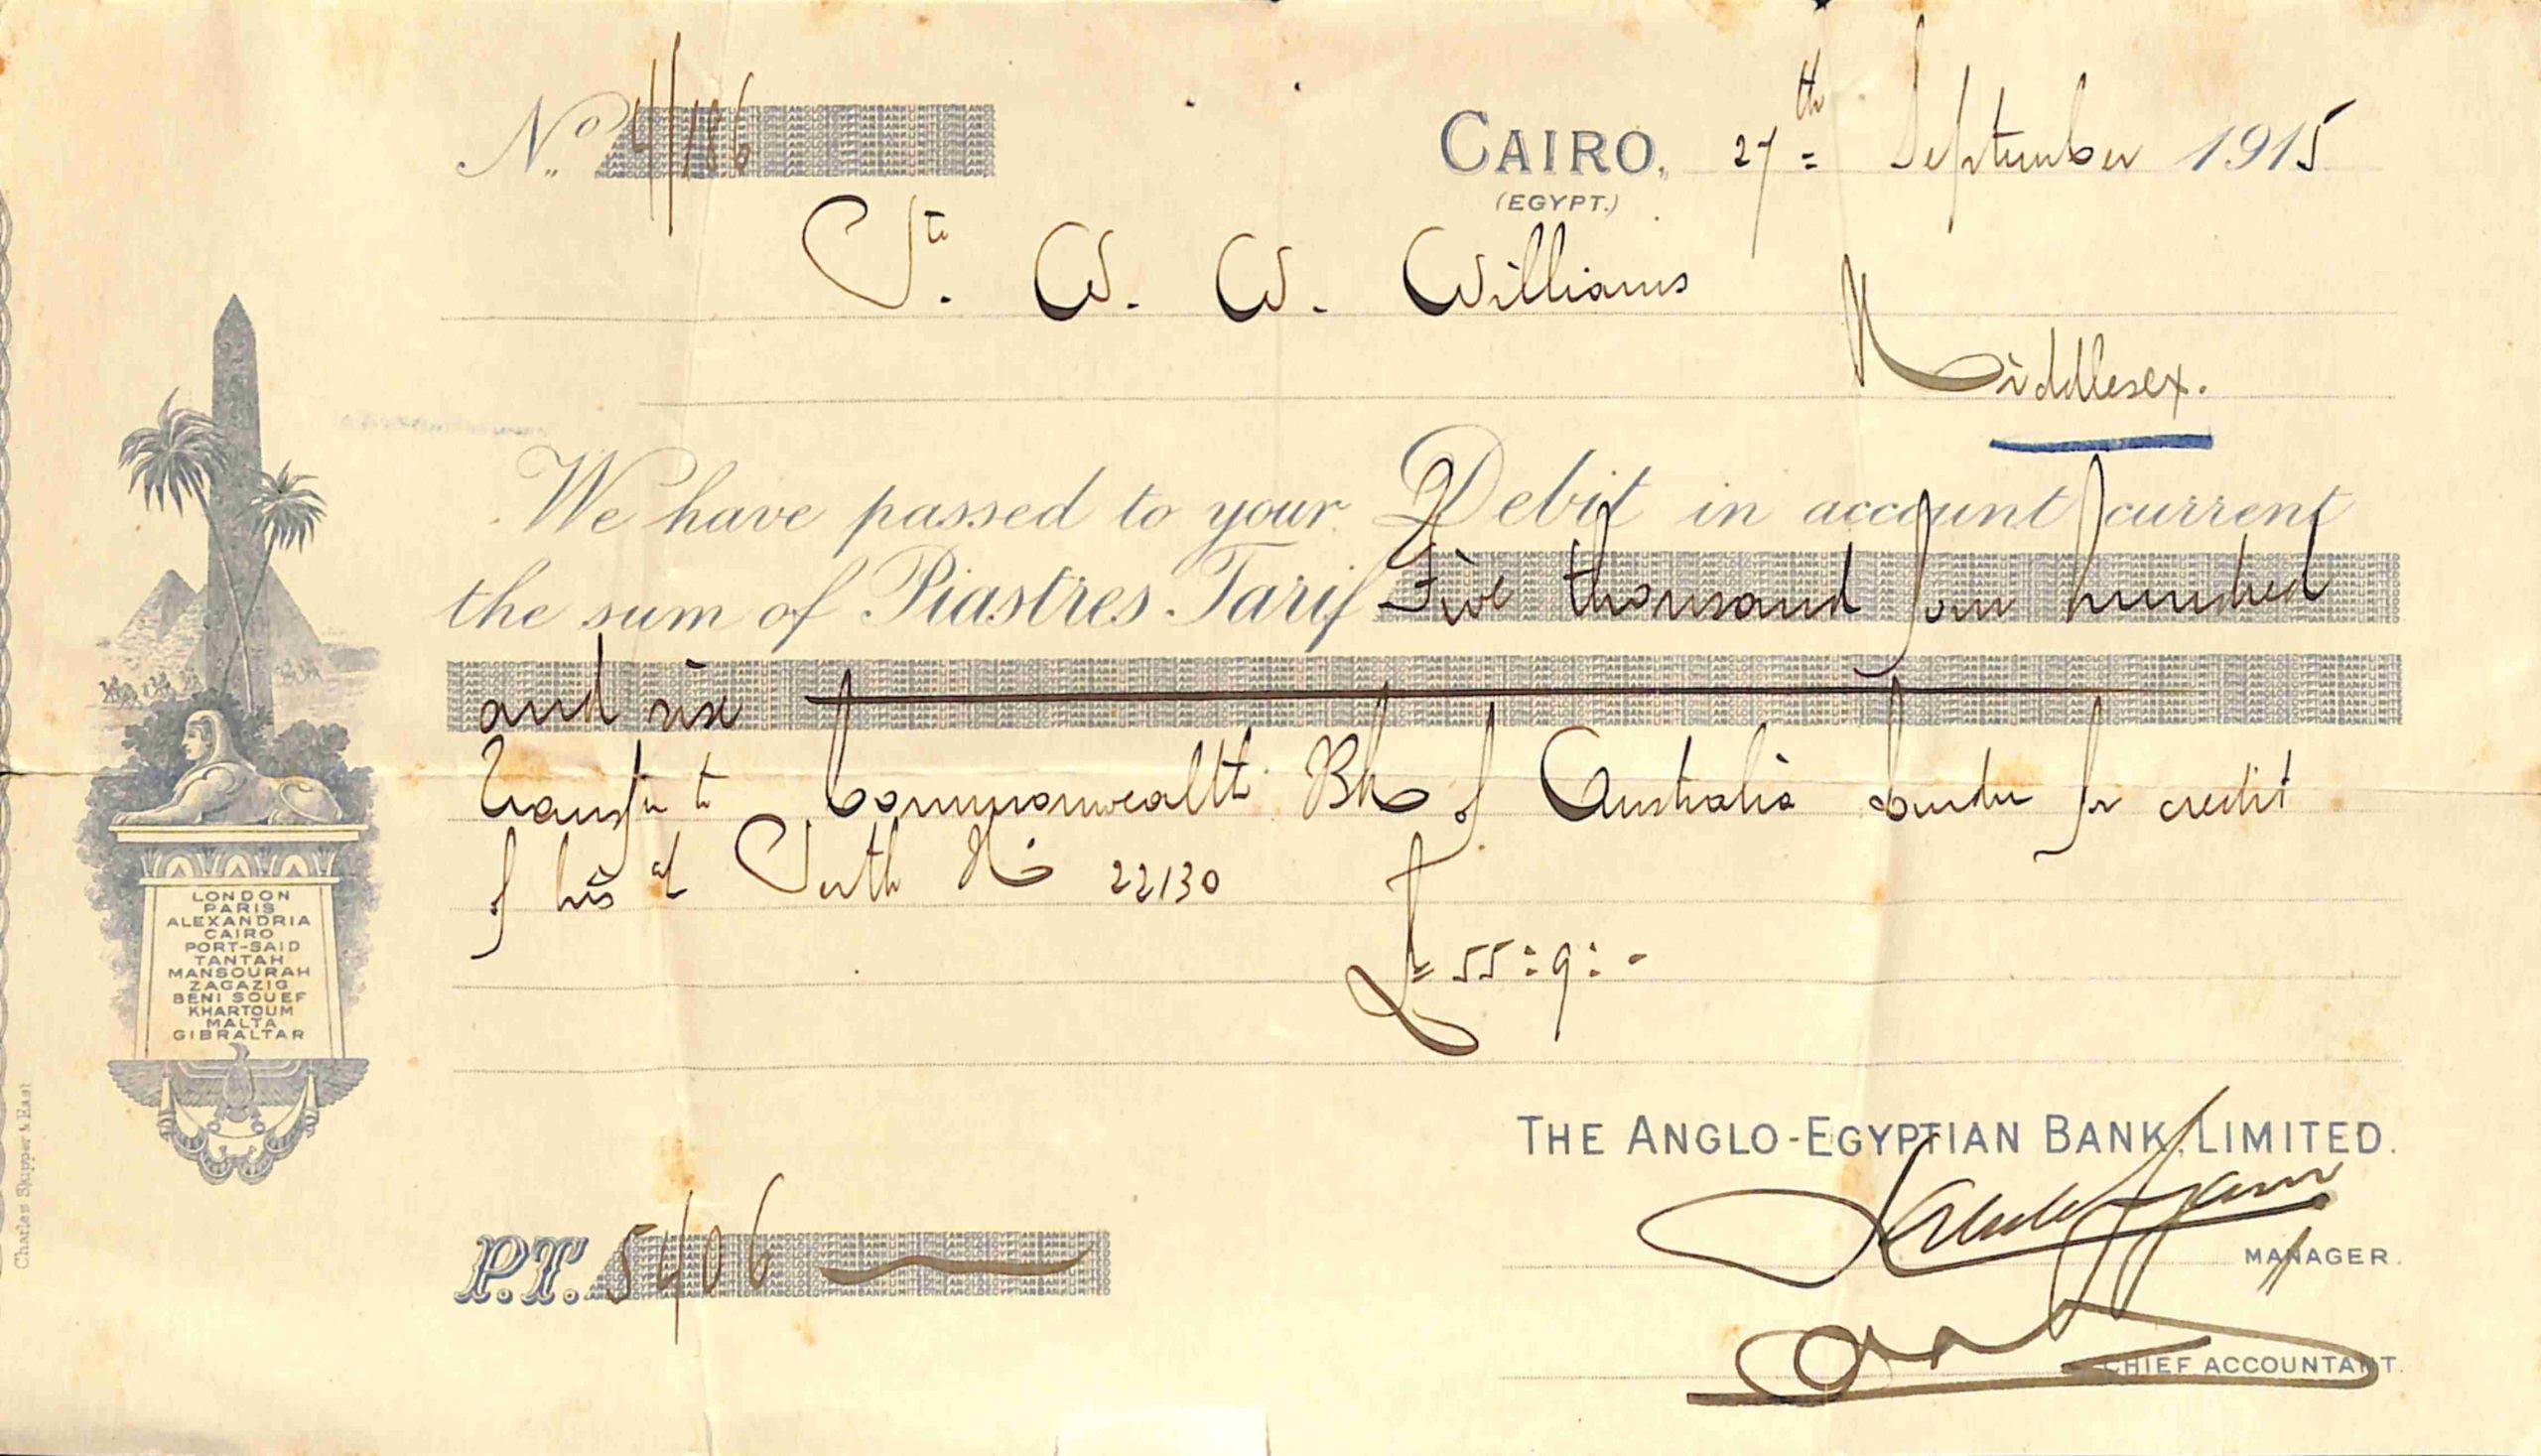 No. 4/186
CAIRO, 27th September 1915
(EGYPT.)
Pte. W. W. Williams
Middlesex.
We have passed to your Debit in account current
the sum of Piastres Tarif Five thousand four hundred
and six
transfer to Commonwealth Bk of Australia London for credit
of his a/ Perth No 22130
£ 55:9:-
LONDON
PARIS
ALEXANDRIA
CAIRO
PORT-SAID
TANTAH
MANSOURAH
ZAGAZIG
BENI SOUEF
KHARTOUM
MALTA
GIBRALTAR
THE ANGLO-EGYPTIAN BANK, LIMITED.
MANAGER.
P.T. 5406
CHIEF ACCOUNTANT.
Charles Skipper & East